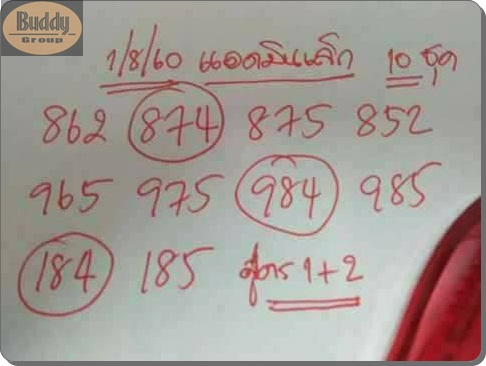 Buddy
Group
1/8/60 แอดมินเล็ก 10 ชุด
862 874 875 852
965 975 984 985
184 185 สูตร 1+2